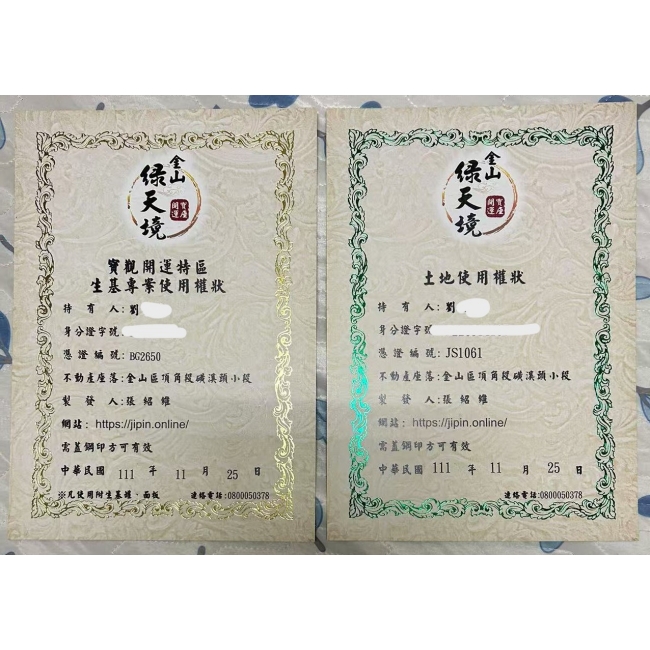 金山
綠天境
寶座
開運
寶觀開運特區
生基專業使用權狀
持有人:劉
身分證字號:
憑證編號:BG2650
不動產座落:金山區頂角段磺溪頭小段
製發人:張紹維
網站:https://jipin.online/
需蓋鋼印方可有效
中華民國 111 年 11 月 25 日
※凡使用附生基罐、面板
連絡電話:0800050378
金山
綠天境
寶座
開運
土地使用權狀
持有人:劉
身分證字號
憑證編號:JS1061
不動產座落:金山區頂角段磺溪頭小段
製發人:張紹維
網站:https://jipin.online/
需蓋鋼印方可有效
中華民國 111 年 11 月 25 日
連絡電話:0800050378